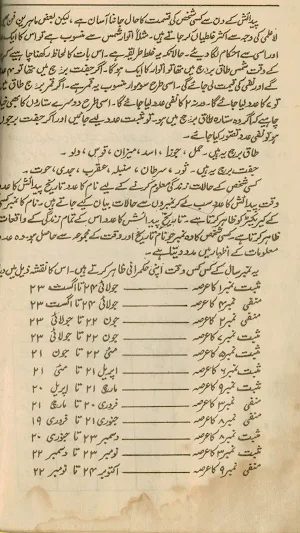 پیدائش کے دن سے کسی شخص کی قسمت کا حال جاننا آسان ہے۔ لیکن بعض ماہرین فن
لاعلمی کی وجہ سے اکثر غلطیاں کر جاتے ہیں۔ مثلاً اتوار شمس سے منسوب ہے تو اس کا ایک
اور اسی سے احکام لگا دیئے۔ حالانکہ یہ غلط طریقہ ہے۔ اس بات کا لحاظ رکھنا چاہیے کہ
کے وقت شمس طاق برج میں تھا تو اتوار کا ایک ہو گا۔ اگر جفت برج میں تھا تو ۴
گے اور نفی کی قیمت لی جائے گی۔ اسی طرح سوموار منسوب بہ قمر ہے۔ اگر قمر برج طاق میں
تو ۷ کا عدد لیا جائے گا۔ ورنہ ۲ کا نفی عدد لیا جائے گا۔ اسی طرح دوسرے ستاروں کا بھی
چاہیے کہ اگر وہ ستارہ طاق برج میں ہو۔ تو مثبت عدد لیے جائیں اور اگر جفت برجوں
ہو تو نفی عدد تصور کیا جائے۔
طاق برج یہ ہیں۔ حمل، جوزا، اسد، میزان، قوس، دلو۔
جفت برج یہ ہیں۔ ثور، سرطان، سنبلہ، عقرب، جدی، حوت۔
کسی شخص کے حالات زندگی معلوم کرنے کے لیے نام کا عدد تاریخ پیدائش کا عدد
وقت پیدائش کا عدد سب کے نمبروں سے حالات بیان کیے جاتے ہیں۔ نام کا نمبر
کے کیریکٹر کو ظاہر کرتا ہے۔ تاریخ پیدائش کا عدد اس کے تمام زندگی کے واقعات
ظاہر کرتا ہے۔ کسی شخص کا وہ نمبر جو نام تاریخ اور وقت کے مجموعہ سے حاصل ہو۔ وہ
معلومات کے اظہار میں مدد دیتا ہے۔
یہ نمبر سال کے کس کس وقت اپنی حکمرانی ظاہر کرتے ہیں۔ اس کا نقشہ ذیل میں
مثبت نمبر ۱ کا عرصہ ——— جولائی ۲۴ تا اگست ۲۳
منفی نمبر ۴ کا عرصہ ——— جولائی ۲۴ تا اگست ۲۳
منفی نمبر ۲ کا عرصہ ——— جون ۲۲ تا جولائی ۲۳
مثبت نمبر ۷ کا عرصہ ——— جون ۲۲ تا جولائی ۲۳
مثبت نمبر ۵ کا عرصہ ——— مئی ۲۲ تا جون ۲۱
مثبت نمبر ۶ کا عرصہ ——— اپریل ۲۱ تا مئی ۲۱
مثبت نمبر ۹ کا عرصہ ——— مارچ ۲۱ تا اپریل ۲۰
منفی نمبر ۳ کا عرصہ ——— فروری ۲۰ تا مارچ ۲۱
منفی نمبر ۸ کا عرصہ ——— جنوری ۲۱ تا فروری ۱۹
مثبت نمبر ۸ کا عرصہ ——— دسمبر ۲۳ تا جنوری ۲۰
مثبت نمبر ۳ کا عرصہ ——— نومبر ۲۳ تا دسمبر ۲۲
منفی نمبر ۹ کا عرصہ ——— اکتوبر ۲۴ تا نومبر ۲۲